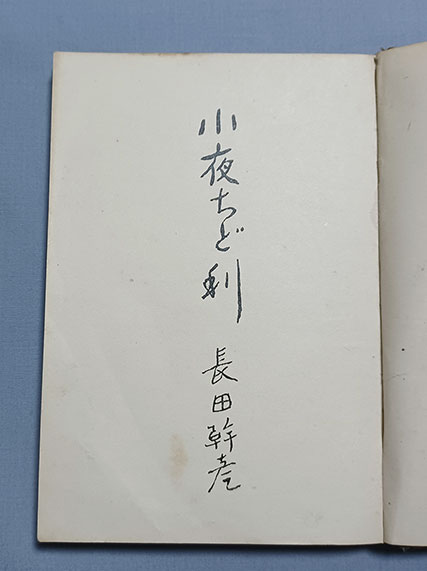 小夜ちど利
長田幹彦